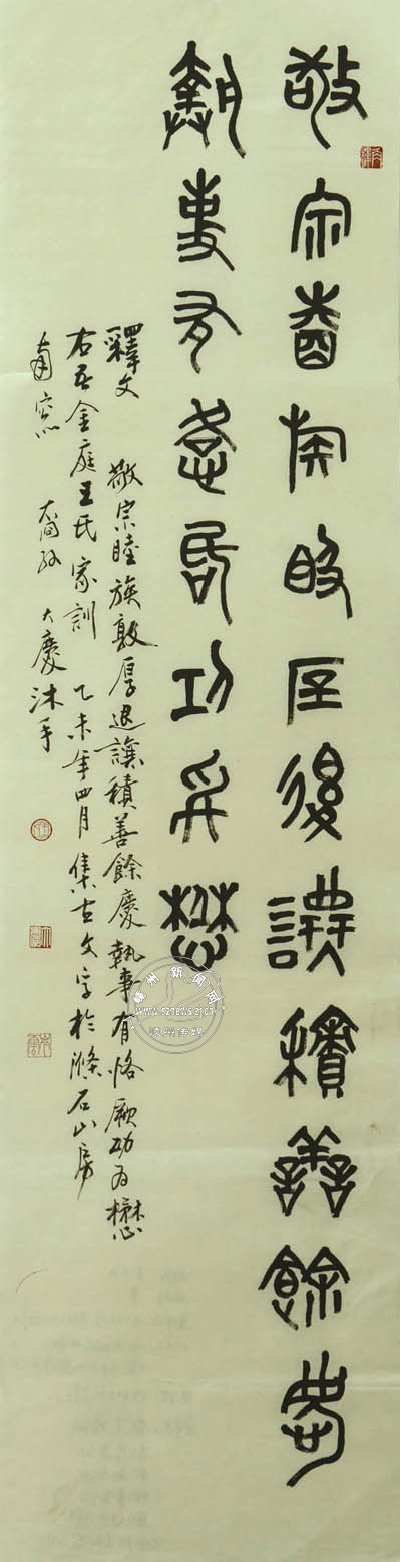 敬宗睦族敦厚退讓積善餘慶
執事有恪厥功為懋
釋文 敬宗睦族敦厚退讓積善餘慶執事有恪厥功为懋
右吾金庭王氏家訓 乙未年四月集古文字於滌石山房
南窓 裔孙 大慶沐手
嵊州新闻网
嵊州传媒